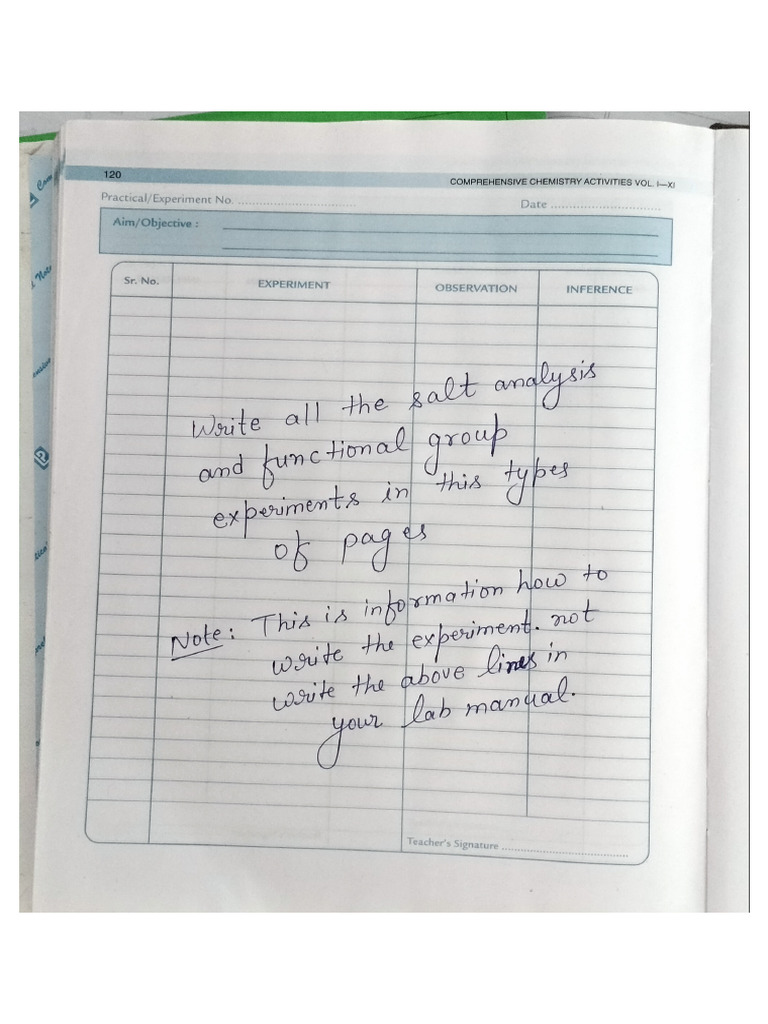 120
COMPREHENSIVE CHEMISTRY ACTIVITIES VOL. I—XI
Practical/Experiment No. ................................ Date ............................
Aim/Objective :
Sr. No. EXPERIMENT OBSERVATION INFERENCE
Write all the salt analysis
and functional group
experiments in this types
of pages
Note: This is information how to
write the experiment. not
write the above lines in
your lab manual.
Teacher's Signature ..................................